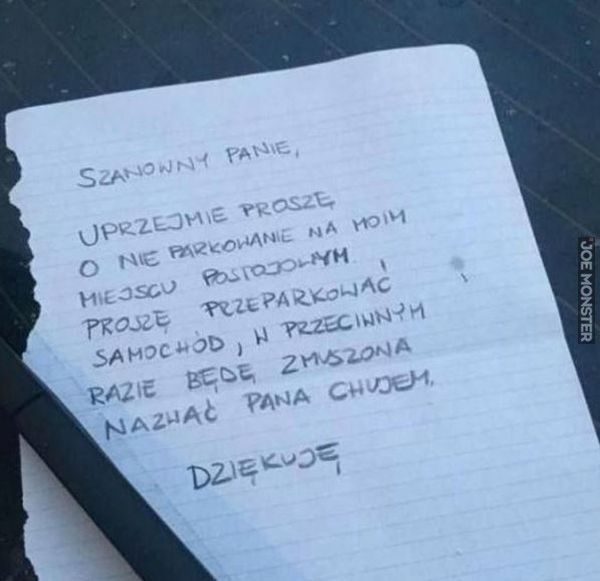 SZANOWNY PANIE,
UPRZEJMIE PROSZĘ
O NIE PARKOWANIE NA MOIM
MIEJSCU POSTOJOWYM.
PROSZĘ PRZEPARKOWAĆ
SAMOCHÓD, W PRZECIWNYM
RAZIE BĘDĘ ZMUSZONA
NAZWAĆ PANA CHUJEM.
DZIĘKUJĘ
JOE MONSTER